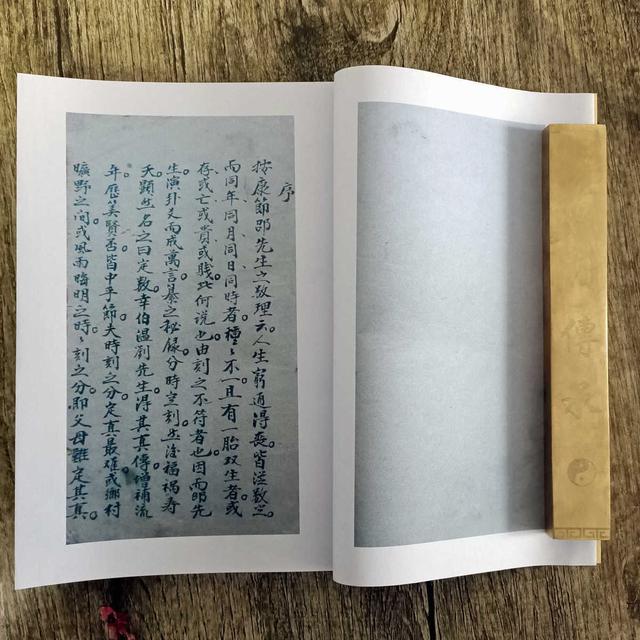 序
按康節邵先生之数理云人生窮通得喪皆註数之
而同年同月同日同時者種〻不一且有一胎双生者或
存或亡或貴或賤此何說也由刻之不符者也因而邵先
生演卦爻而成萬言纂之秘錄分時定刻至於福禍寿
夭顯然名之曰定数幸伯温劉先生得其真傳增補流
年應美賢否皆由乎節夫時刻之分定真最难或鄉村
曠野之间或風雨晦明之時〻刻之分即父母難定其真
傳